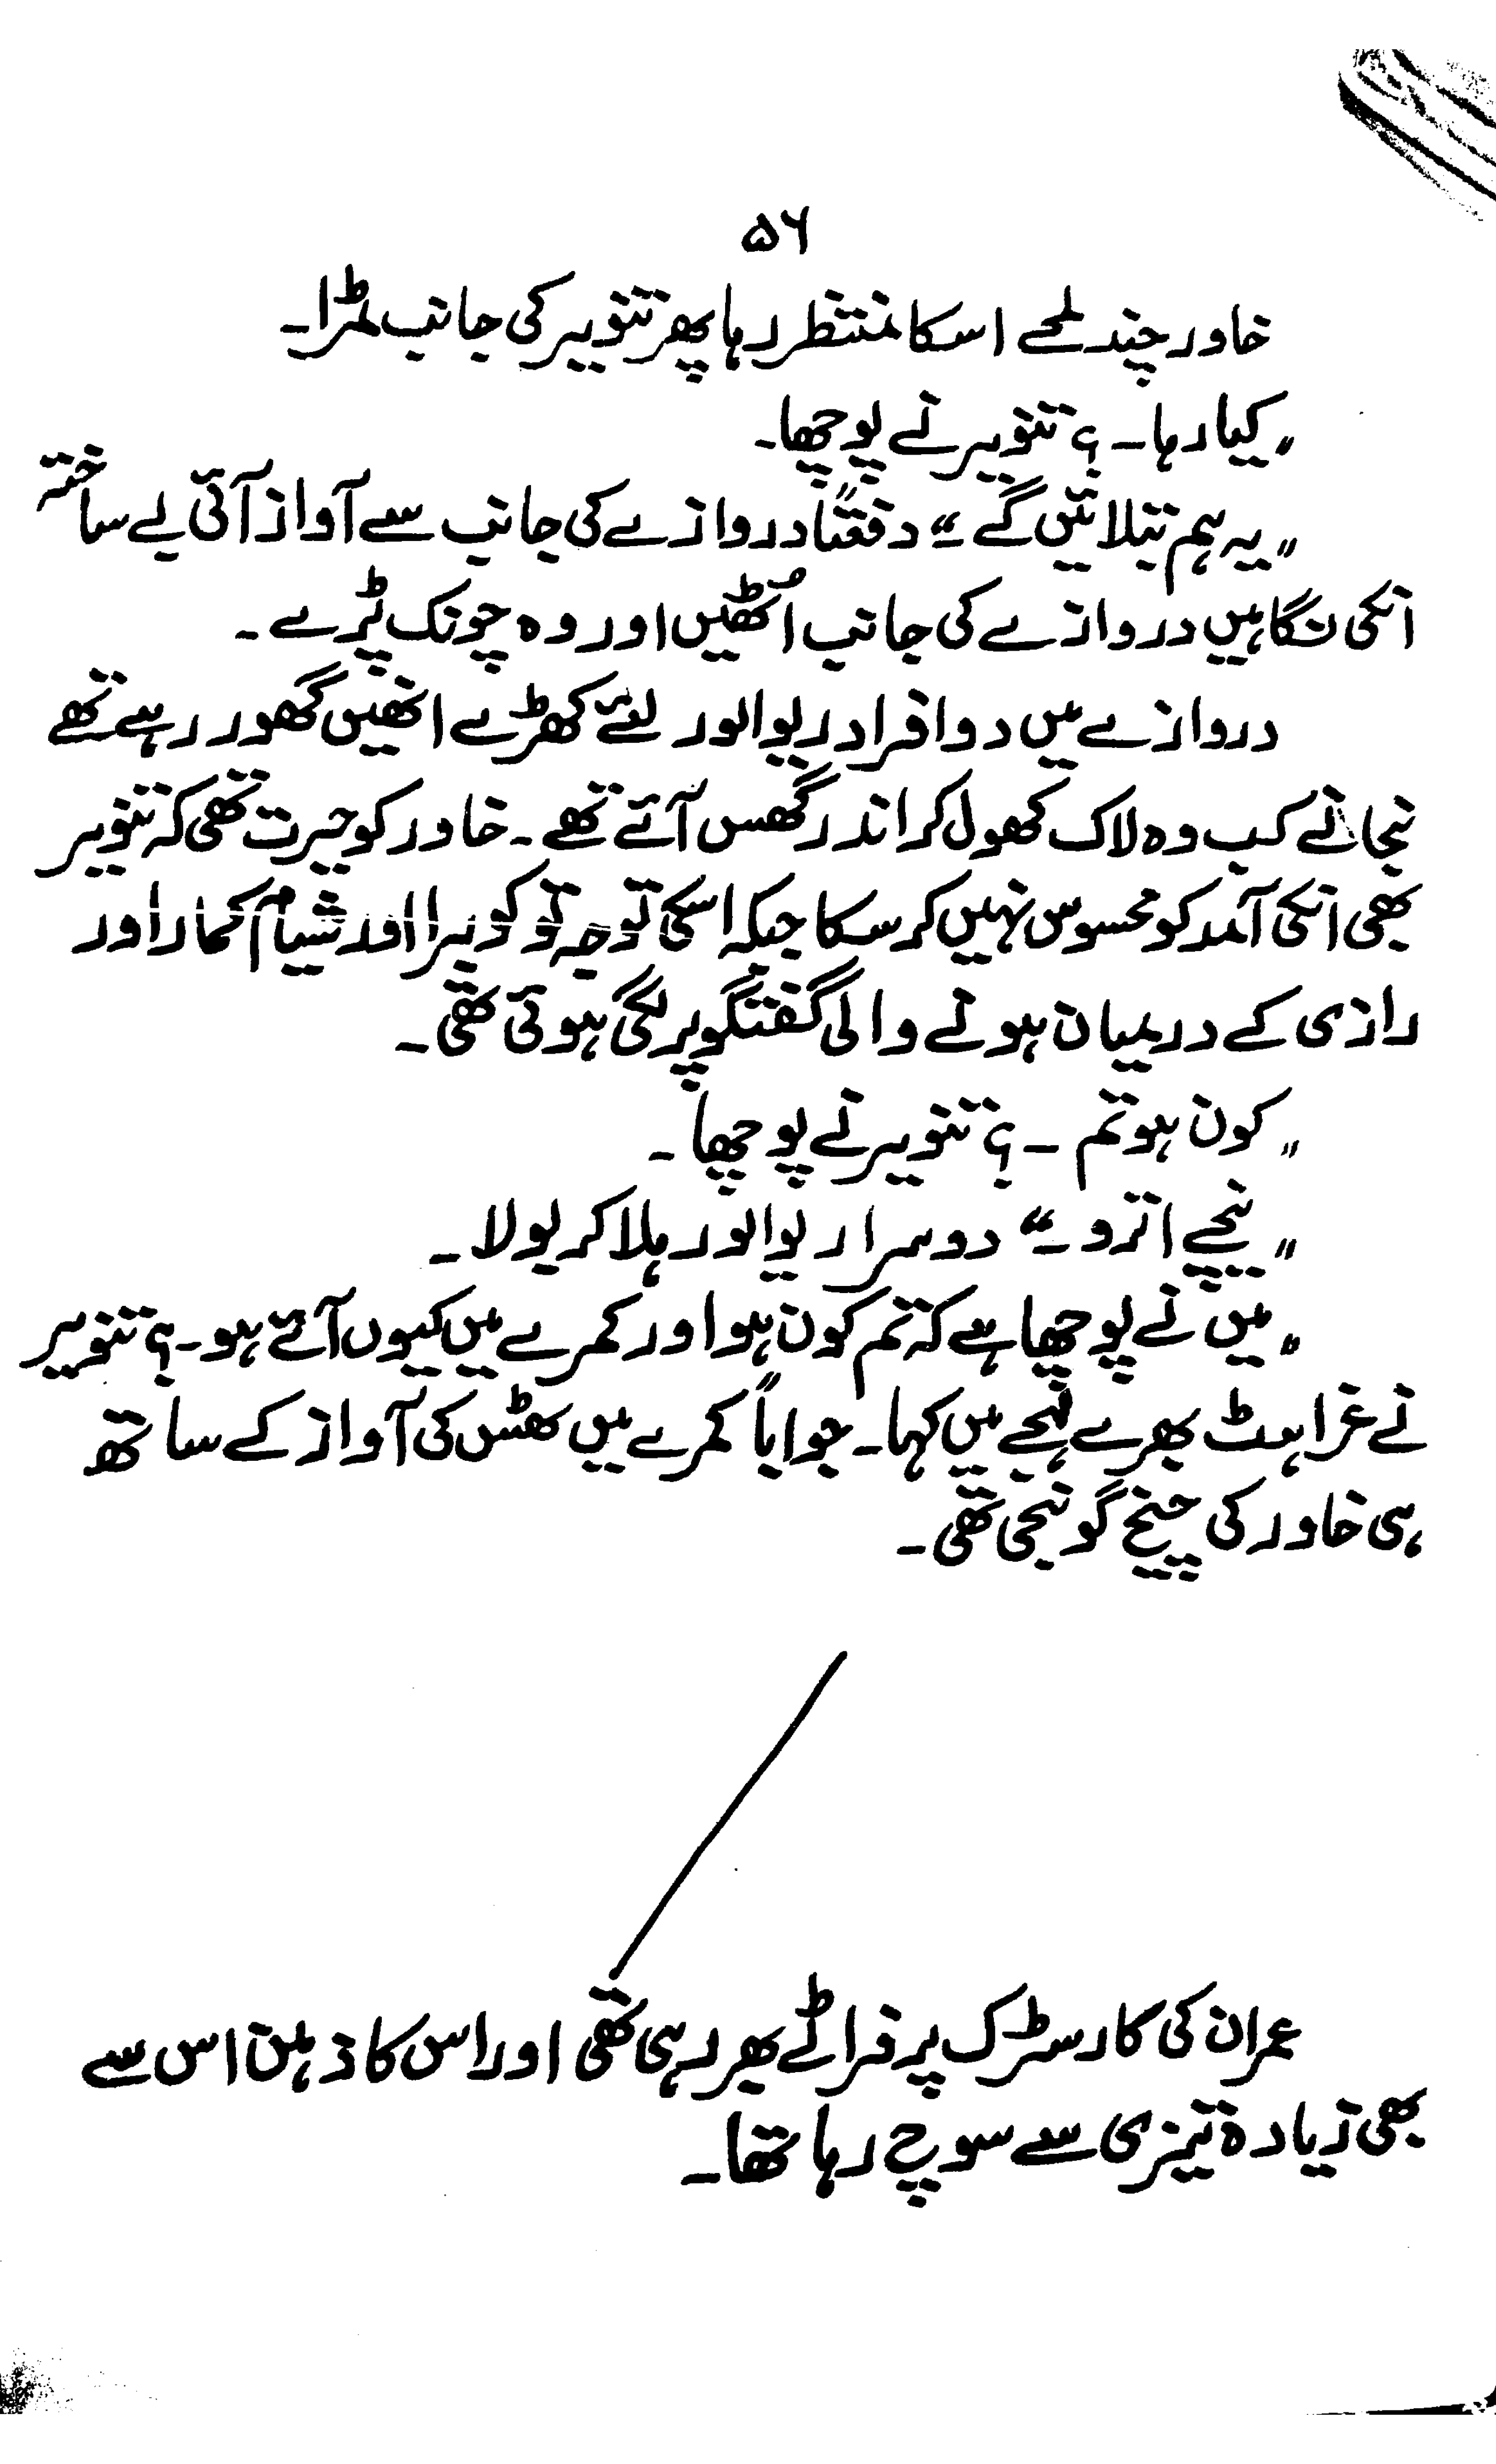 ۵۶
خاور چند لمحے اسکا منتظر رہا پھر تنویر کی جانب مڑا۔
"کیا رہا۔؟ تنویر نے پوچھا۔
"یہ ہم بتلائیں گے۔" دفعتاً دروازے کی جانب سے آواز آئی بے ساختہ
انکی نگاہیں دروازے کی جانب اُٹھیں اور وہ چونک پڑے۔
دروازے میں دو افراد ریوالور لئے کھڑے انھیں گھور رہے تھے
نجانے کب وہ لاک کھول کر اندر گھس آئے تھے۔ خاور کو حیرت تھی کہ تنویر
بھی انکی آمد کو محسوس نہیں کر سکا جبکہ اسکی توجہ تو کوبرا اور شیام کمار اور
رازی کے درمیان ہونے والی گفتگو پر لگی ہوئی تھی۔
"کون ہو تم ۔؟ تنویر نے پوچھا۔
"نیچے اترو۔" دوسرا ریوالور ہلا کر بولا۔
"میں نے پوچھا ہے کہ تم کون ہو اور کمرے میں کیوں آئے ہو۔؟ تنویر
نے غراہٹ بھرے لہجے میں کہا۔ جواباً کمرے میں کھٹس کی آواز کے ساتھ
ہی خاور کی چیخ گونجی تھی۔
عمران کی کار سڑک پر فراٹے بھر رہی تھی اور اس کا ذہن اس سے
بھی زیادہ تیزی سے سوچ رہا تھا۔